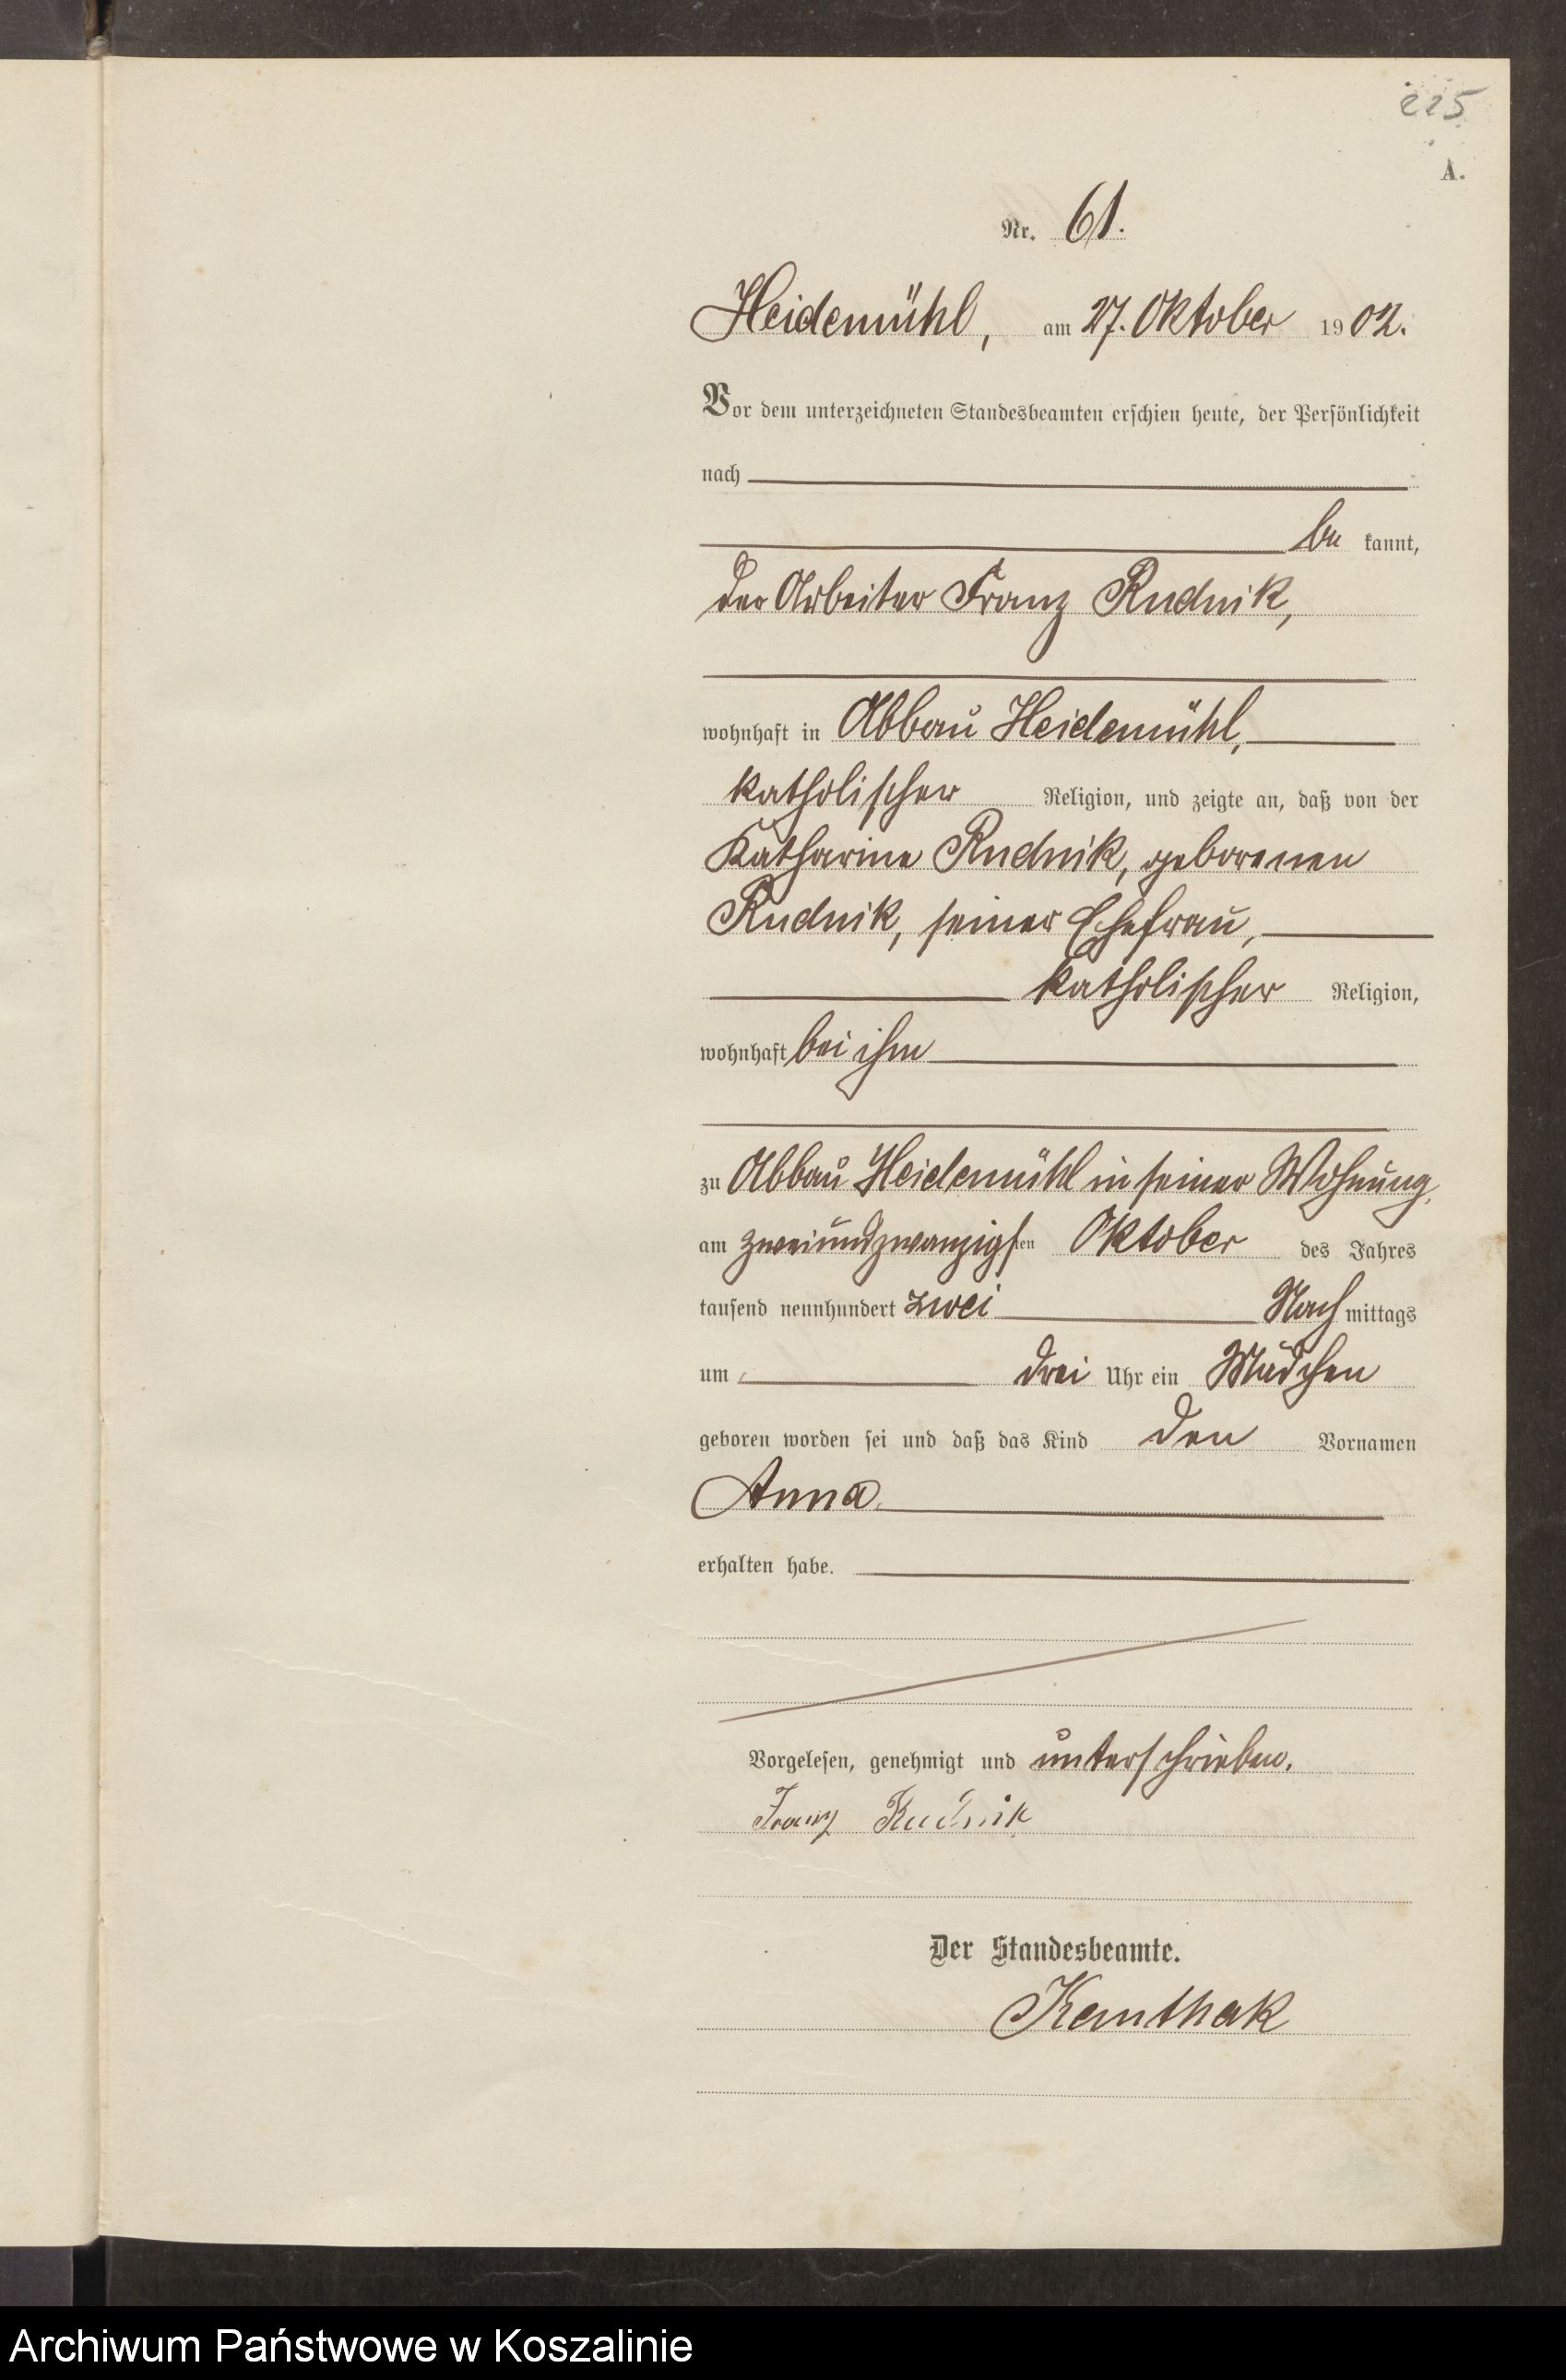 225
A.
Nr. 61.
Heidemühl, am 27. Oktober 1902.
Vor dem unterzeichneten Standesbeamten erschien heute, der Persönlichkeit
nach
be kannt,
der Arbeiter Franz Rudnik,
wohnhaft in Abbau Heidemühl,
katholischer Religion, und zeigte an, daß von der
Katharina Rudnik, geborenen
Rudnik, seiner Ehefrau,
katholischer Religion,
wohnhaft bei ihm
zu Abbau Heidemühl in seiner Wohnung,
am zweiundzwanzigsten Oktober des Jahres
tausend neunhundert zwei Nach mittags
um drei Uhr ein Mädchen
geboren worden sei und daß das Kind den Vornamen
Anna
erhalten habe.
Vorgelesen, genehmigt und unterschrieben.
Franz Rudnik
Der Standesbeamte.
Kemthak
Archiwum Państwowe w Koszalinie